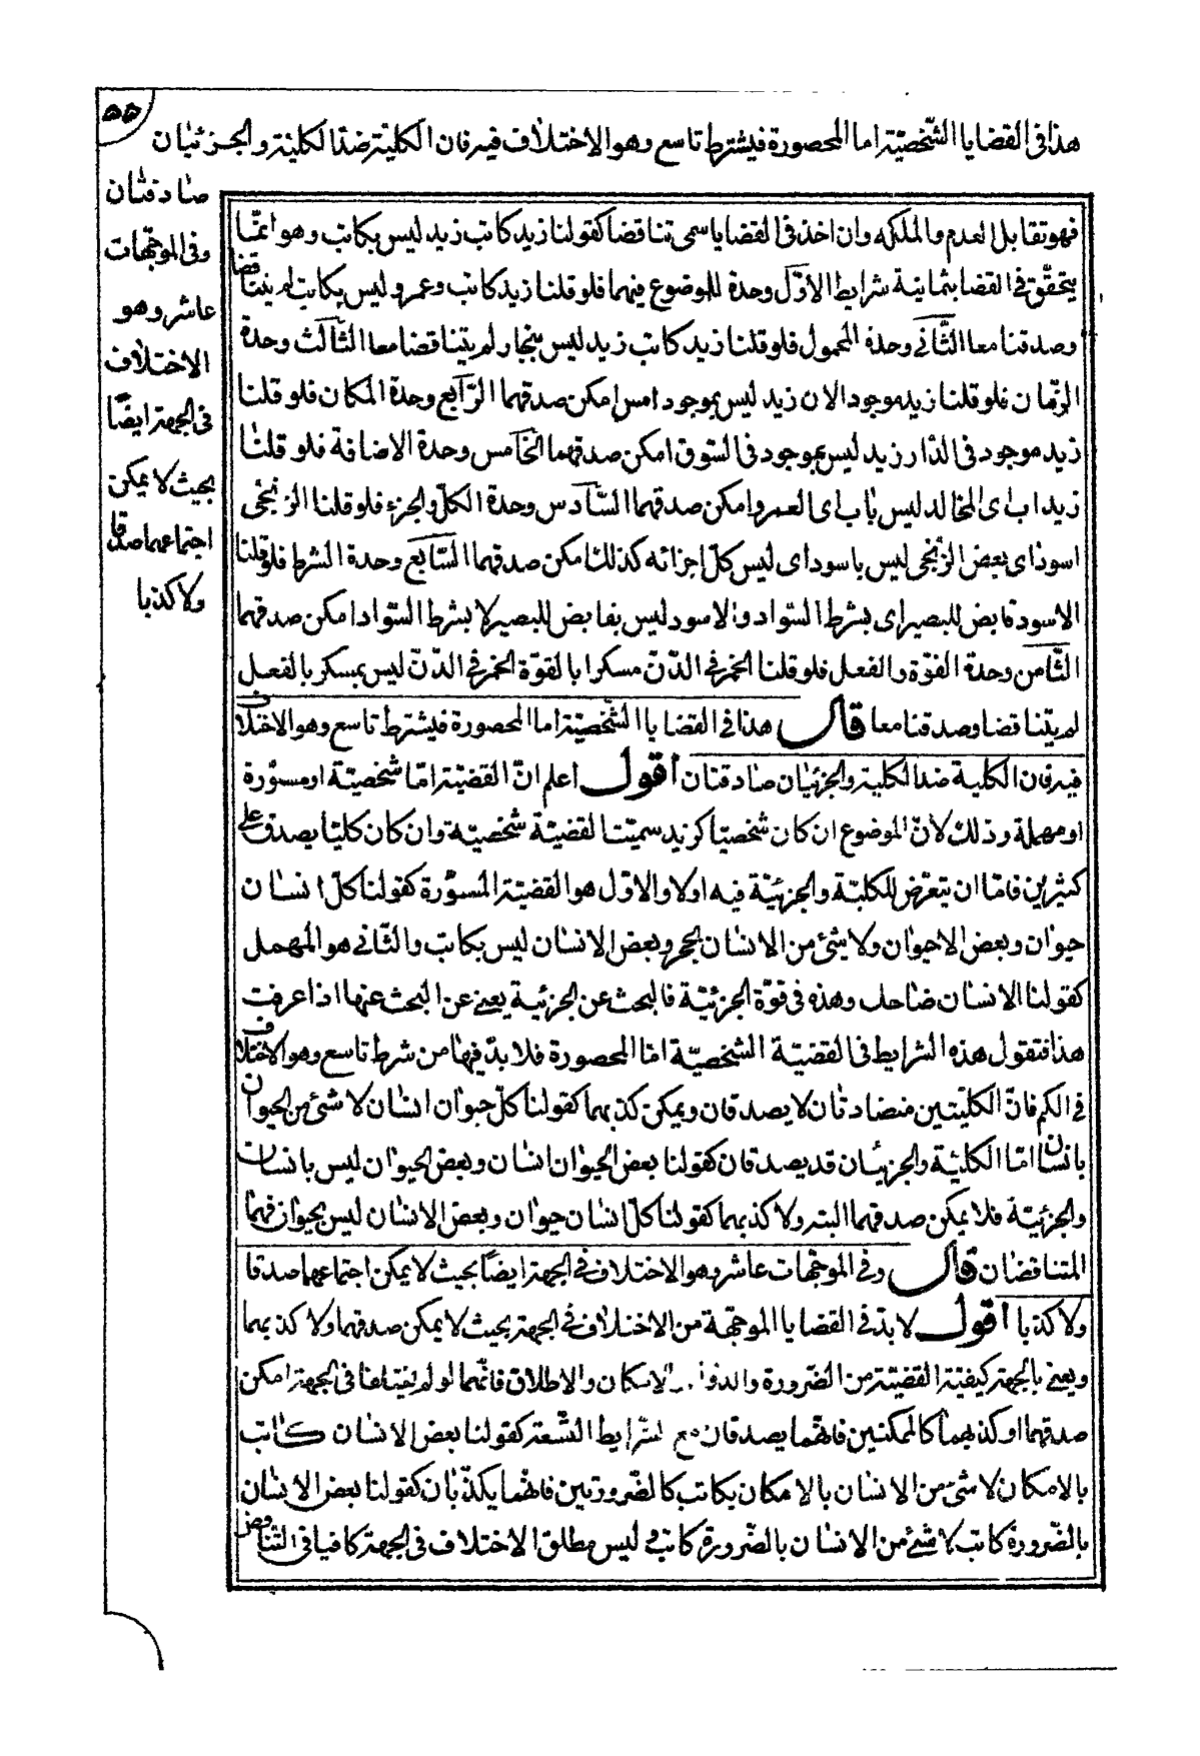 ٥٥
هذا فى القضايا الشّخصيّة اما المحصورة فيشترط تاسع وهو الاختلاف فيه فان الكليّة ضدّ الكليّة والجزئيّان
صادقتان
وفى الموجّهات
عاشر وهو
الاختلاف
فى الجهة ايضًا
بحيث لا يمكن
اجتماعهما صدقا
ولا كذبا
فهو تقابل العدم والملكه وان اخذ فى القضايا سمى تناقضا كقولنا زيد كاتب زيد ليس بكاتب وهو انمّا
يتحقّق فى القضايا بثمانية شرايط الأوّل وحدة للموضوع فيهما فلو قلنا زيد كاتب وعمرو ليس بكاتب لم يتناقضا
وصدقتا معا الثّانى وحدة المحمول فلو قلنا زيد كاتب زيد ليس بنجار ولم يتناقضا معا الثّالث وحدة
الزمّان فلو قلنا زيد موجود الان زيد ليس بموجود امس امكن صدقهما الرّابع وحدة المكان فلو قلنا
زيد موجود فى الدّار زيد ليس بموجود فى السّوق امكن صدقهما الخامس وحدة الاضافة فلو قلنا
زيد اب اى لخالد ليس باب اى لعمرو امكن صدقهما السّادس وحدة الكلّ والجزء فلو قلنا الزنجى
اسود اى بعض الزنجى ليس باسود اى ليس كلّ اجزائه كذلك امكن صدقهما السّابع وحدة الشرط فلو قلنا
الاسود قابض للبصر اى بشرط السّواد والاسود ليس بقابض للبصر لا بشرط السّواد امكن صدقهما
الثّامن وحدة القوّة والفعل فلو قلنا الخمر فى الدّنّ مسكر بالقوّة الخمر فى الدّنّ ليس بمسكر بالفعل
لم يتناقضا وصدقتا معا قال هذا فى القضايا الشّخصيّة اما المحصورة فيشترط تاسع وهو الاختلاف
فيه فان الكلية ضد الكلية والجزئيّان صادقتان اقول اعلم انّ القضيّة امّا شخصيّة او مسوّرة
او مهملة وذلك لانّ الموضوع ان كان شخصيّا كزيد سميّت القضيّة شخصيّة وان كان كليّا يصدق على
كثيرين فامّا ان يتعرّض للكليّة والجزئيّة فيه اولا والاوّل هو القضيّة المسوّرة كقولنا كلّ انسان
حيوان وبعض الاحيوان ولا شئ من الانسان بحجر وبعض الانسان ليس بكاتب والثّانى هو المهمل
كقولنا الانسان ضاحك وهذه فى قوّة الجزئيّة فالبحث عن الجزئيّة يغنى عن البحث عنها اذا عرفت
هذا فنقول هذه الشرايط فى القضيّة الشخصيّة امّا المحصورة فلا بدّ فيها من شرط تاسع وهو الاختلاف
فى الكم فانّ الكليّتين متضادتان لا يصدقان ويمكن كذبهما كقولنا كلّ حيوان انسان لا شئ من الحيوان
بانسان امّا الكليّة والجزئيّان قد يصدقان كقولنا بعض الحيوان انسان وبعض الحيوان ليس بانسان
والجزئيّة فلا يمكن صدقهما البتة ولا كذبهما كقولنا كلّ انسان حيوان وبعض الانسان ليس بحيوان فهما
المتناقضان قال وفى الموجّهات عاشر وهو الاختلاف فى الجهة ايضًا بحيث لا يمكن اجتماعهما صدقا
ولا كذبا اقول لا بدّ فى القضايا الموجّهة من الاختلاف فى الجهة بحيث لا يمكن صدقهما ولا كذبهما
ونعنى بالجهة كيفيّة القضيّة من الضّرورة والدوام الامكان والاطلاق فانّهما لو لم يختلفا فى الجهة امكن
صدقهما او كذبهما كالممكنين فانّهما يصدقان مع الشرايط التّسعة كقولنا بعض الانسان كاتب
بالامكان لا شئ من الانسان بالامكان بكاتب كالضّروريتين فانّهما يكذبان كقولنا بعض الانسان
بالضّرورة كاتب لا شئ من الانسان بالضّرورة كاتب وليس مطلق الاختلاف فى الجهة كافيا فى التّناقض